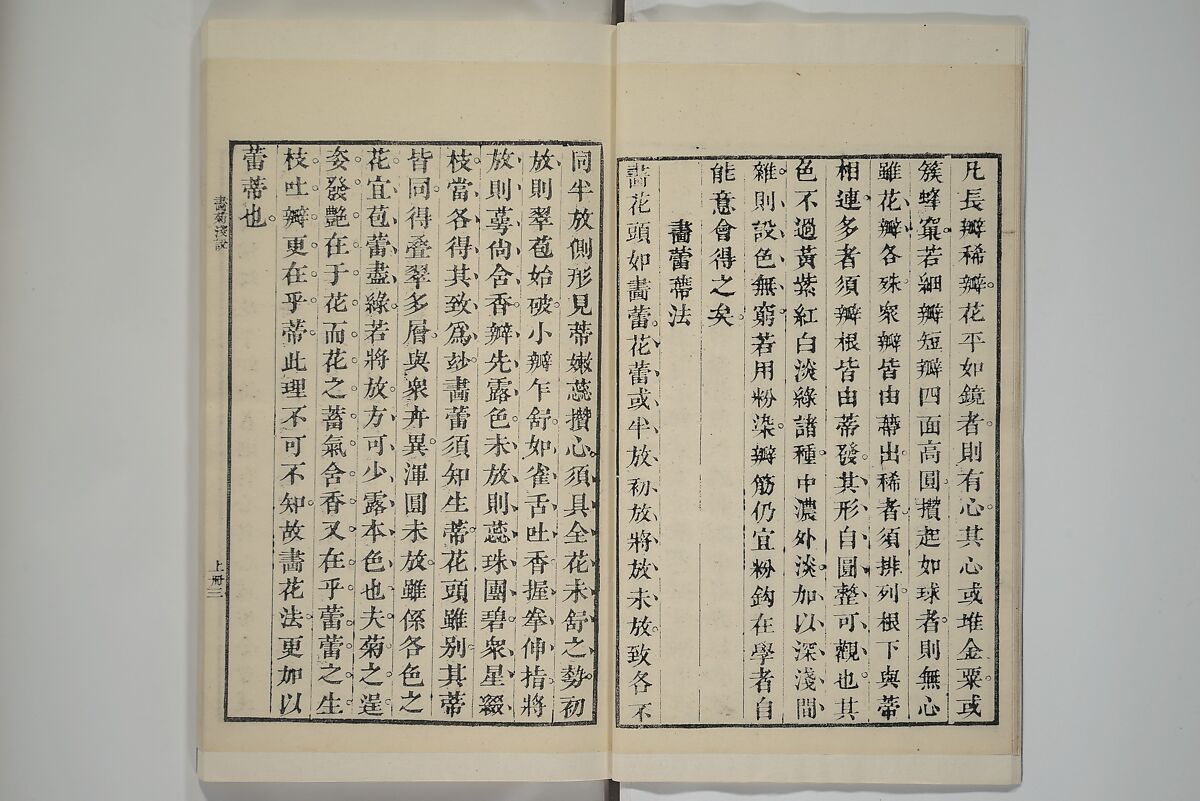 凡長瓣稀瓣花平如鏡者則有心其心或堆金粟或
簇蜂窠若細瓣短瓣四面高圓攢起如球者則無心
雖花瓣各殊衆瓣皆由蒂出稀者須排列根下與蒂
相連多者須瓣根皆由蒂發其形自圓整可觀也其
色不過黃紫紅白淡綠諸種中濃外淡加以深淺間
雜則設色無窮若用粉染瓣筋仍宜粉鈎在學者自
能意會得之矣
畵蕾蒂法
畵花頭如畵蕾花蕾或半放初放將放未放致各不
同半放側形見蒂嫩蕊攢心須具全花未舒之勢初
放則翠苞始破小瓣乍舒如雀舌吐香握拳伸指將
放則蕚尙含香瓣先露色未放則蕊珠團碧衆星綴
枝當各得其致爲玅畵蕾須知生蒂花頭雖別其蒂
皆同得疊翠多層與衆卉異渾圓未放雖係各色之
花宜苞蕾盡綠若將放方可少露本色也夫菊之逞
姿發艷在于花而花之蓄氣含香又在乎蕾蕾之生
枝吐瓣更在乎蒂此理不可不知故畵花法更加以
蕾蒂也
畵菊淺說
上册三